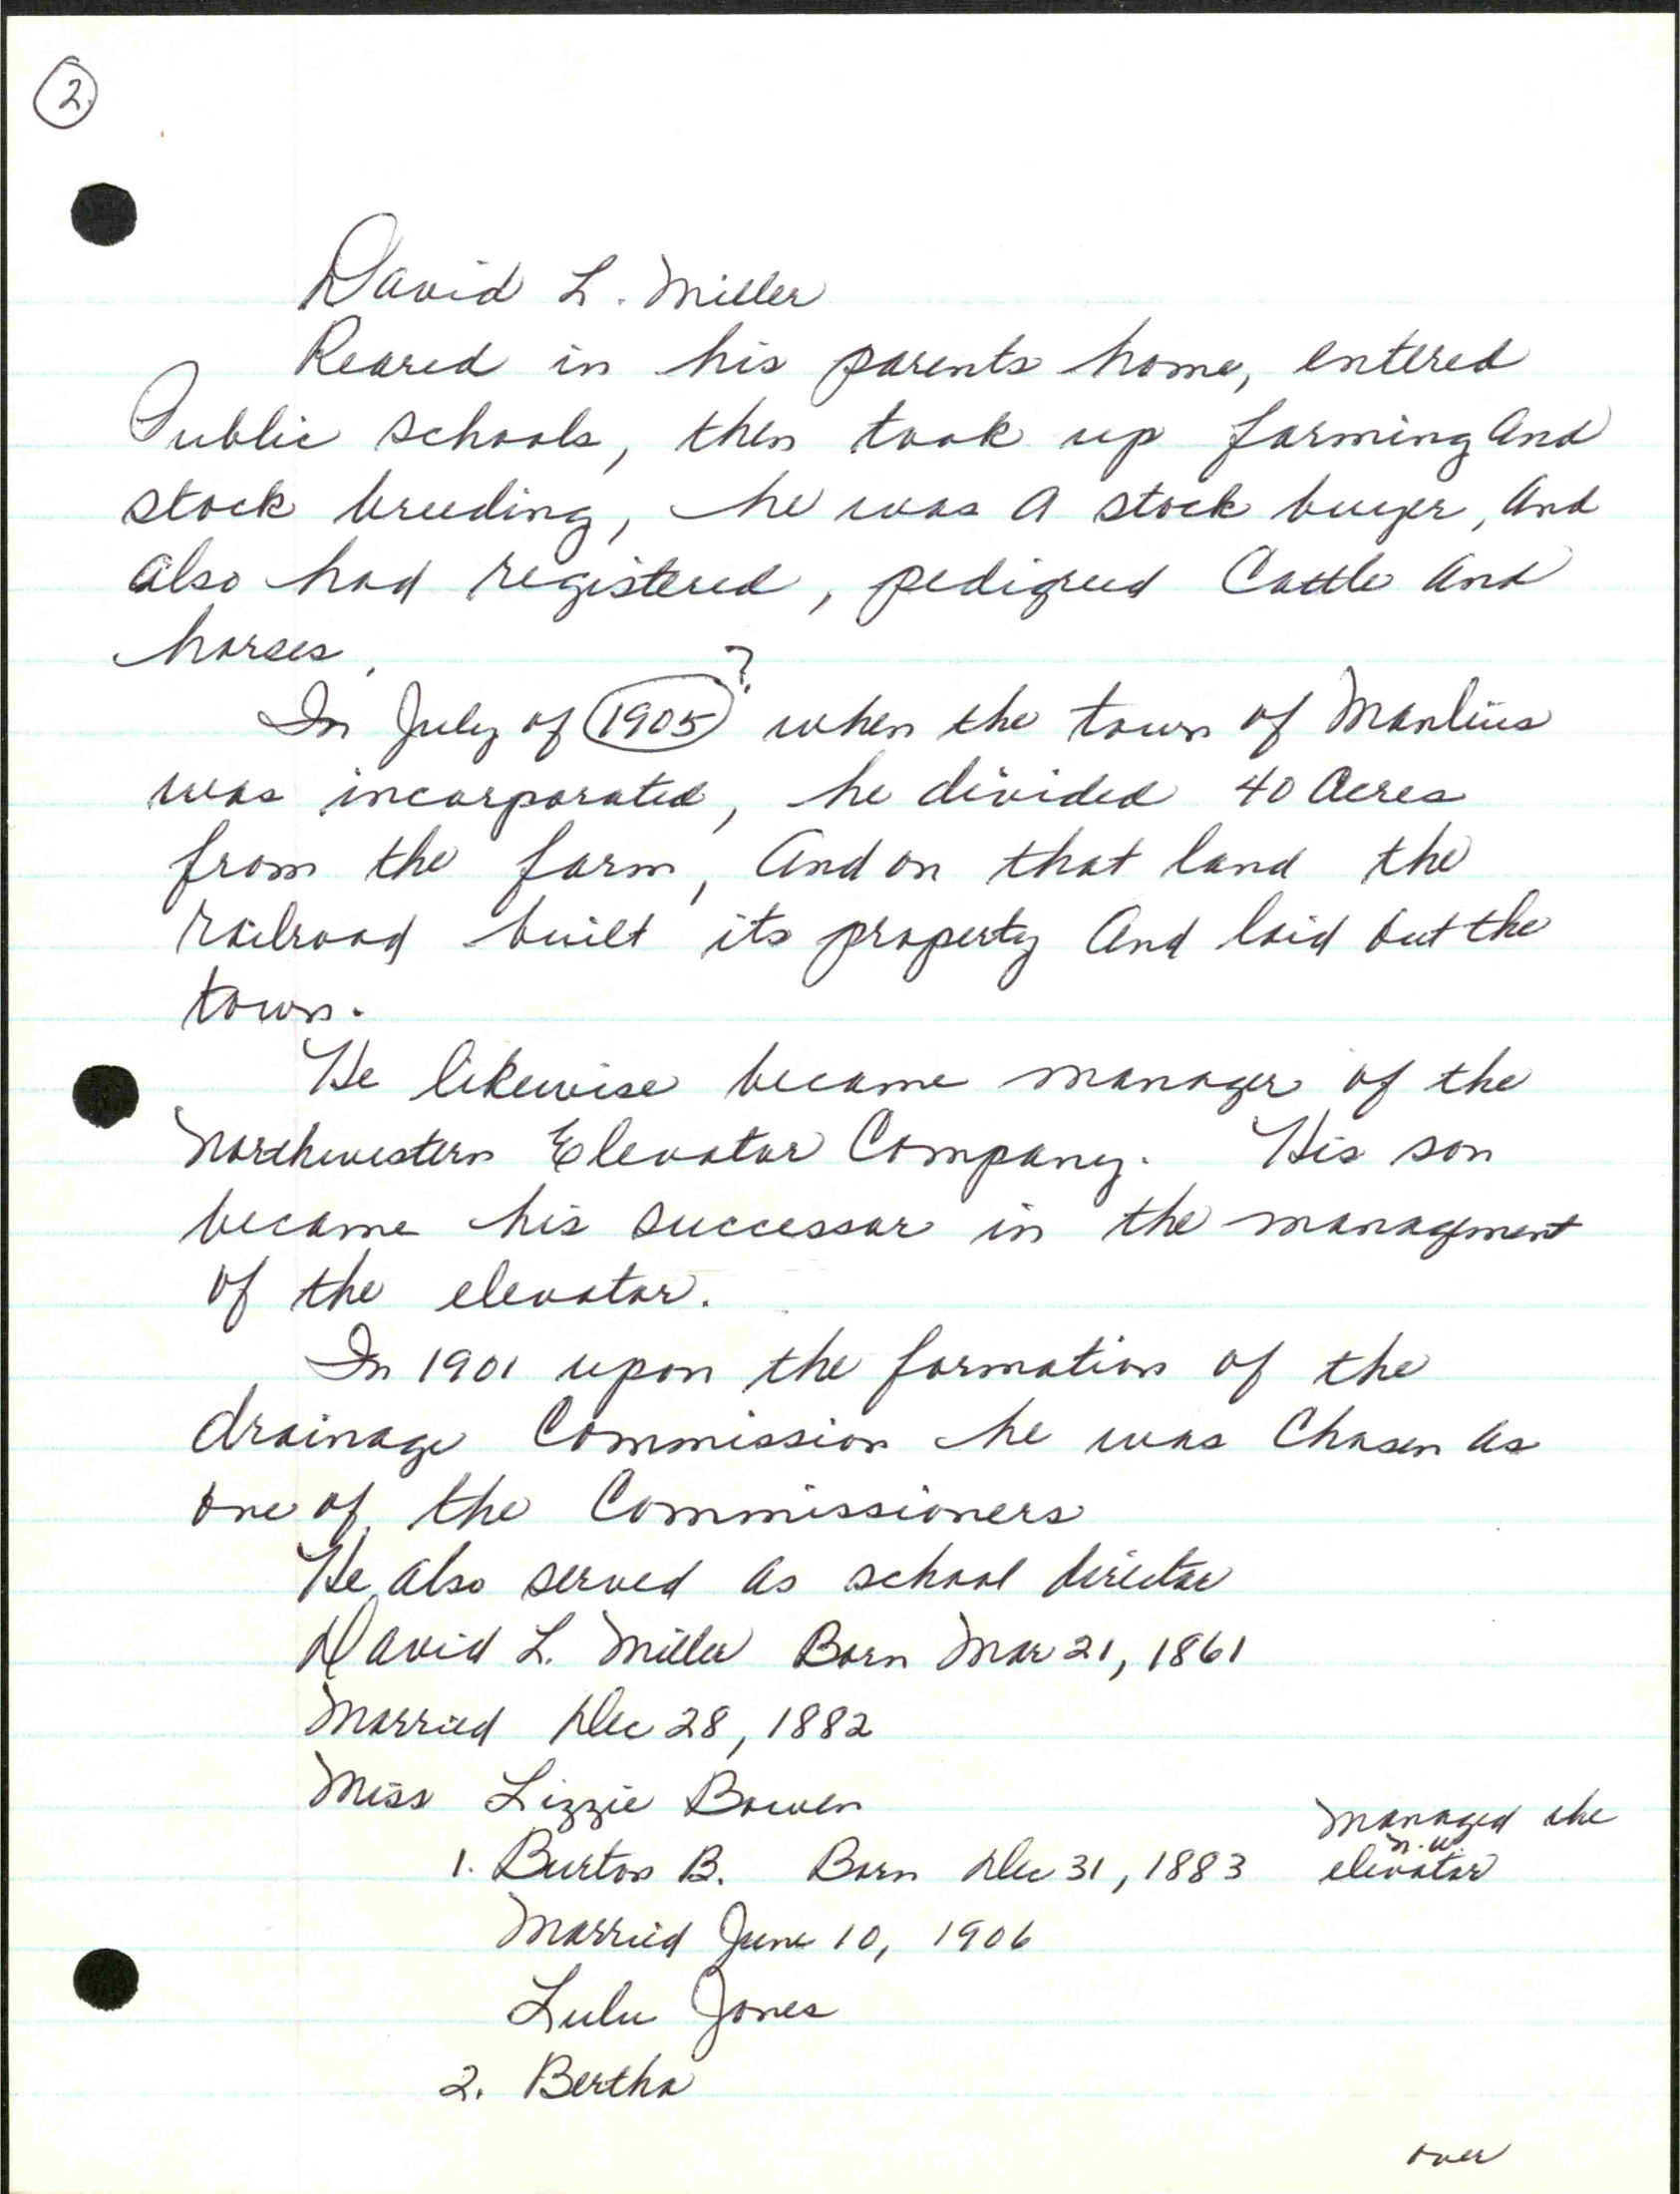 2.
David L. Miller
Reared in his parents home, entered
Public schools, then took up farming and
stock breeding, he was a stock buyer, and
also had registered, pedigreed Cattle and
horses.
In July of 1905 ? when the town of Manlius
was incorporated, he divided 40 Acres
from the farm, and on that land the
railroad built its property and laid out the
town.
He likewise became manager of the
Northwestern Elevator Company. His son
became his successor in the managment
of the elevator.
In 1901 upon the formation of the
drainage Commission he was Chosen as
one of the Commissioners
He also served as school director
David L. Miller Born Mar 21, 1861
Married Dec 28, 1882
Miss Lizzie Bowen
1. Burton B. Born Dec 31, 1883 managed the
n.w.
elevator
Married June 10, 1906
Lulu Jones
2. Bertha
over